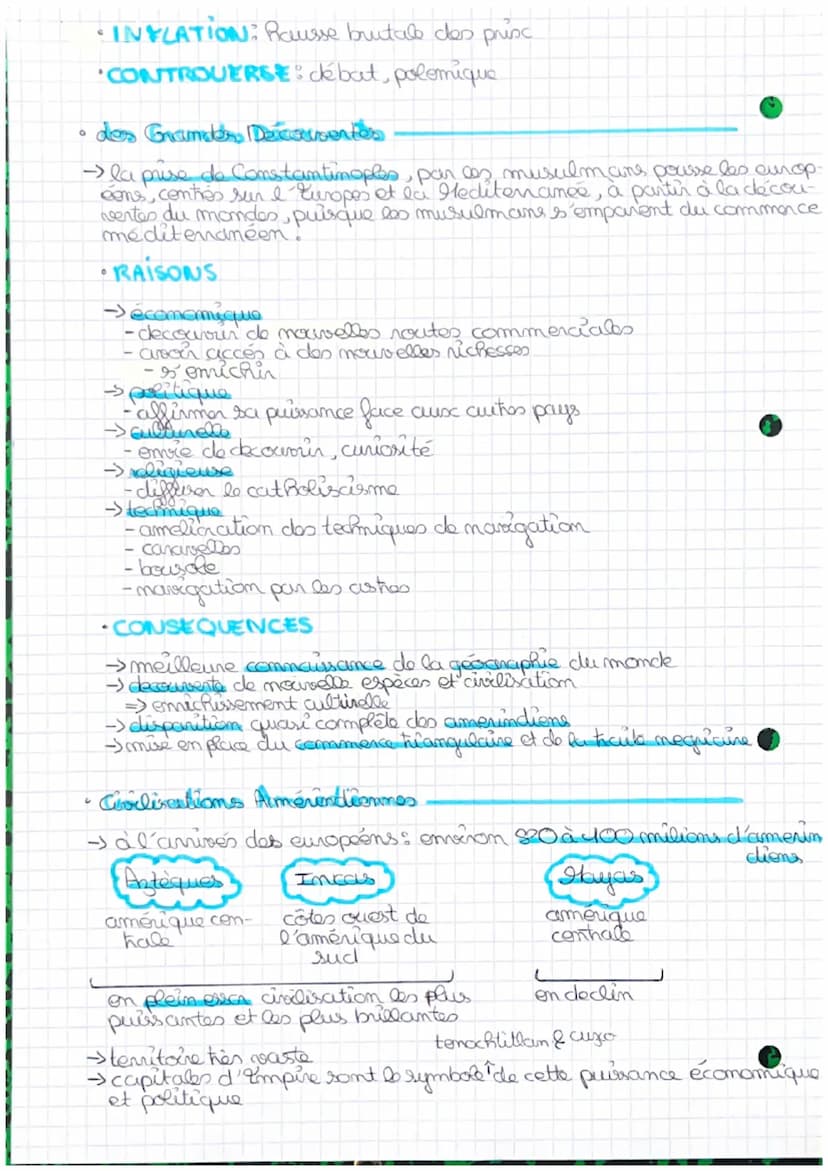 • INFLATION : Hausse brutale des prix
• CONTROVERSE : débat, polemique
• des Grandes Découvertes
→ la prise de Constantinoples, par les musulmans pousse les europ-
éens, centrés sur l'Europes et la Mediterranée, à partir à la décou-
vertes du mondes, puisque les musulmans s'emparent du commerce
méditerranéen.
• RAISONS
→ économique
- decouvrir de nouvelles routes commerciales
- avoir accés à des nouvelles richesses
- s'enrichir
→ politique
- affirmer sa puissance face aux autres pays
→ culturelle
- envie de decouvrir, curiosité
→ religieuse
- diffuser le catholiscisme
→ technique
- amelioration des techniques de navigation
- caravelles
- boussole
- navigation par les astres
• CONSEQUENCES
→ meilleure connaissance de la géographie du monde
→ decouverte de nouvelle espèces et civilisation
⇒ enrichissement culturelle
→ disparition quasi complète des amerindiens
→ mise en place du commerce triangulaire et de la traite
• Civilisations Amérindiennes
→ à l'arrivés des européens : environ 80 à 100 milions d'amerin
diens
Aztèques Incas Mayas
amérique cen- côtes ouest de amérique
trale l'amérique du centrale
sud
en plein essor civilisation les plus en declin
puissantes et les plus brillantes
tenochtitlan & cuzo
→ territoire très vaste
→ capitales d'Empire sont le symbole de cette puissance économique
et politique